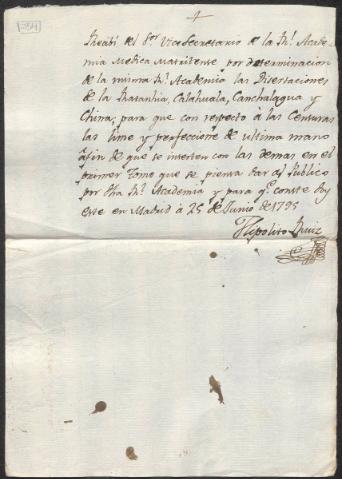 254
Recibí del Sr. Vice Secretario de la Rl. Acade
mia Medica Matritense, por determinacion
de la misma Rl. Academia las Disertaciones
de la Ratanhia, Calahuala, Canchalagua y
China; para que con respecto à las Censuras
las lime y perfeccione de ultima mano
àfin de que se inserten con las demas en el
primer tomo que se piensa dar al Publico
por dha Rl. Academia y para qe. conste doy
este en Madrid à 25 de Junio de 1795
Hipolito Ruiz